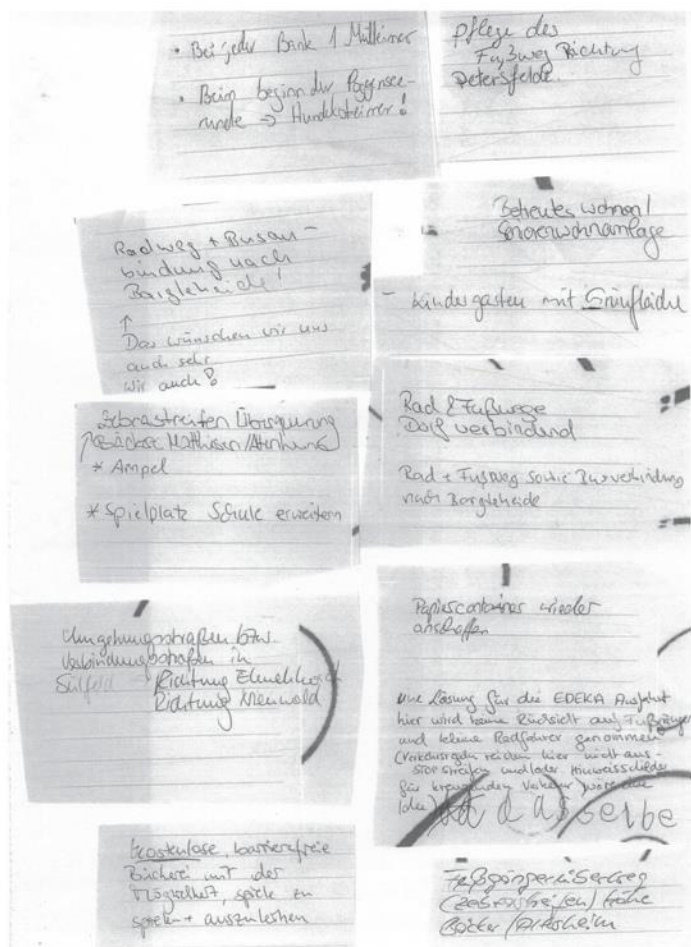 • Bei jeder Bank 1 Mülleimer
• Beim beginn der Poggensee-
runde → Hundekoteimer!
pflege des
Fußweg Richtung
Petersfelde.
Radweg + Busan-
bindung nach
Bargteheide!
↑
Das wünschen wir uns
auch sehr
wir auch!
Betreutes wohnen/
Seniorenwohnanlage
- Kindergarten mit Grünfläche
Zebrastreifen Überquerung
↑ Bäcker Matthiesen/Altenheim
* Ampel
* Spielplatz Schule erweitern
Rad & Fußwege
Dorf verbindend
Rad + Fußweg sowie Busverbindung
nach Bargteheide
Umgehungsstraßen bzw.
Verbindungsstraßen in
Sülfeld → Richtung Elmenhorst
Richtung Nienwold
Papiercontainer wieder
anschaffen
eine Lösung für die EDEKA Ausfahrt
hier wird keine Rücksicht auf Fußgänger
und kleine Radfahrer genommen
(Verkehrsregeln reichen hier nicht aus -
STOP streifen und/oder Hinweisschilder
für kreuzenden Verkehr wäre eine
Idee)
dasselbe
kostenlose, barrierefreie
Bücherei mit der
Möglichkeit, spiele zu
spielen + auszuleihen
Fußgängerüberweg
(Zebrastreifen) Höhe
Bäcker/Altenheim